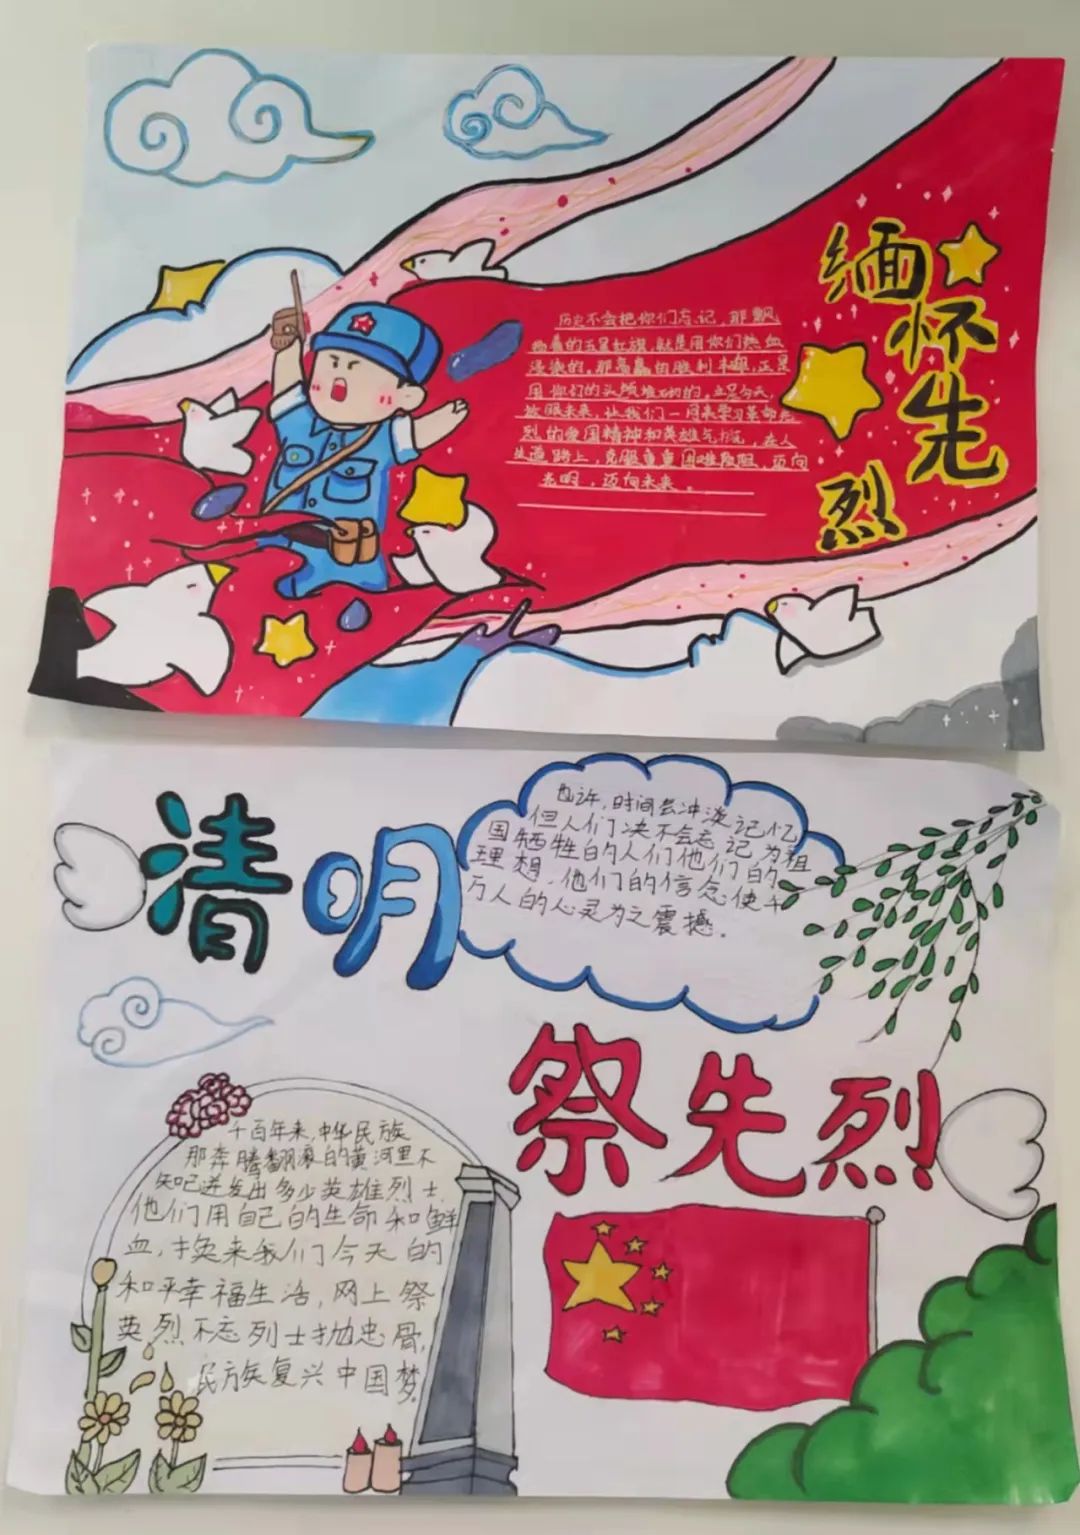 缅怀先
烈
历史不会把你们忘记,那飘
扬着的五星红旗,就是用你们热血
浸染的,那高矗的胜利丰碑,正是
用你们的头颅堆砌的,立足今天,
放眼未来,让我们一同来学习革命先
烈的爱国精神和英雄气概,在人
生道路上,克服重重困难险阻,迈向
光明,迈向未来。
清明
也许,时间会冲淡记忆
但人们决不会忘记为祖
国牺牲的人们他们的
理想,他们的信念使千
万人的心灵为之震撼.
祭先烈
千百年来,中华民族
那奔腾翻滚的黄河里不
知已迸发出多少英雄烈士
他们用自己的生命和鲜
血,换来我们今天的
和平幸福生活,网上祭
英烈不忘烈士抛忠骨,
民族复兴中国梦.